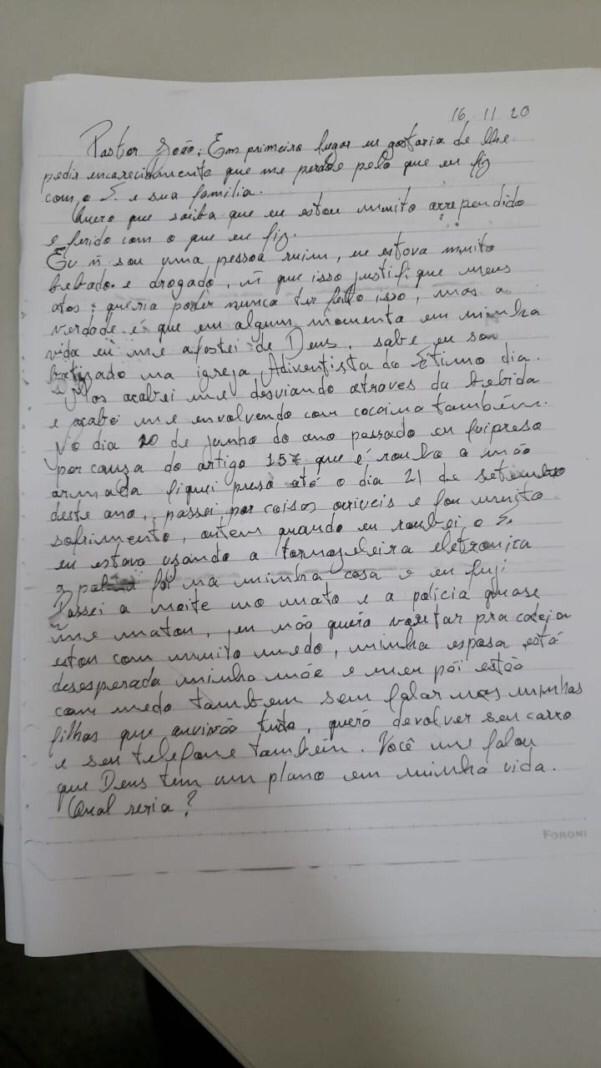 16 11 20
Pastor João; Em primeiro lugar eu gostaria de lhe
pedir encarecidamente que me perdoe pelo que eu fiz
com o S. e sua familia.
Quero que saiba que eu estou muito arrependido
e ferido com o que eu fiz.
Eu ñ sou uma pessoa ruim, eu estava muito
bebado e drogado, ñ que isso justifique meus
atos; queria poder nunca ter feito isso, mas a
verdade é que em algum momento em minha
vida eu me afastei de Deus, sabe eu sou
batizado na igreja Adventista do Sétimo dia.
Mas acabei me desviando atraves da bebida
e acabei me envolvendo com cocaina também.
No dia 20 de junho do ano passado eu fui preso
por causa do artigo 157 que é roubo a mão
armada fiquei preso até o dia 21 de setembro
deste ano, passei por coisas orriveis e foi muito
sofrimento, ontem quando eu roubei o S.
eu estava usando a tornozeleira eletronica
a foi na minha casa e eu fugi
Passei a noite no mato e a policia quase
me matou, eu não quero voltar pra cadeia
estou com muito medo, minha esposa está
desesperada minha mãe e meu pai estão
com medo tambem sem falar nas minhas
filhas que ouvirão tudo, quero devolver seu carro
e seu telefone também. Você me falou
que Deus tem um plano em minha vida.
Qual seria?
FORONI